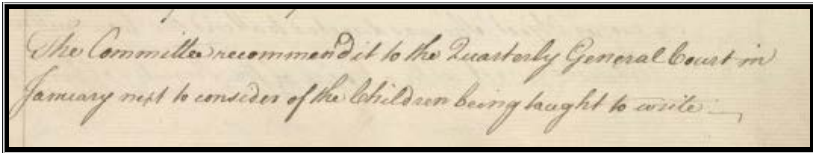 The Committee recommend it to the Quarterly General Court in
January next to consider of the Children being taught to write